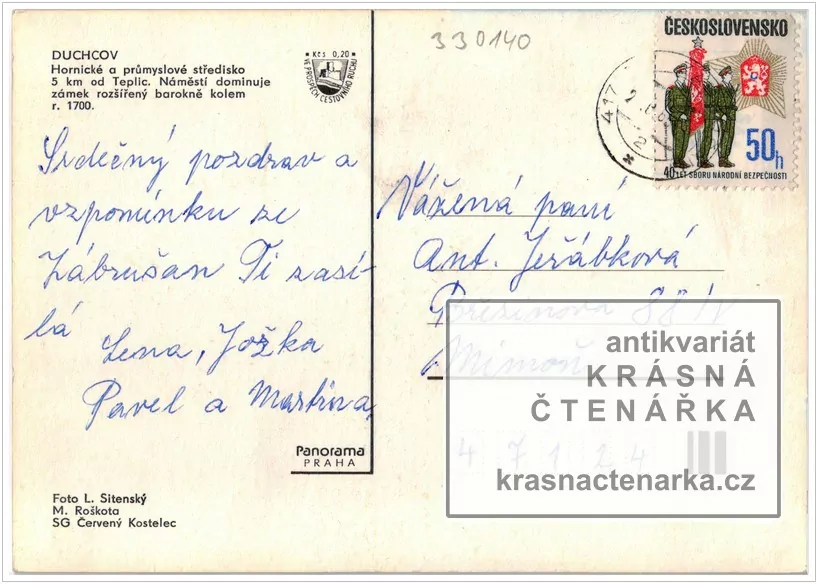 330140
DUCHCOV
Hornické a průmyslové středisko
5 km od Teplic. Náměstí dominuje
zámek rozšířený barokně kolem
r. 1700.
Kčs 0,20
VE PROSPĚCH CESTOVNÍHO RUCHU
ČESKOSLOVENSKO
50h
40 LET SBORU NÁRODNÍ BEZPEČNOSTI
417
Srdečný pozdrav a
vzpomínku ze
Zábrušan Ti zasí-
lá
Lena, Jožka
Pavel a Martina
Vážená paní
Ant. Jeřábková
88/IV
Mimoň
47124
Panorama
PRAHA
Foto L. Sitenský
M. Roškota
SG Červený Kostelec
antikvariát
KRÁSNÁ
ČTENÁŘKA
krasnactenarka.cz